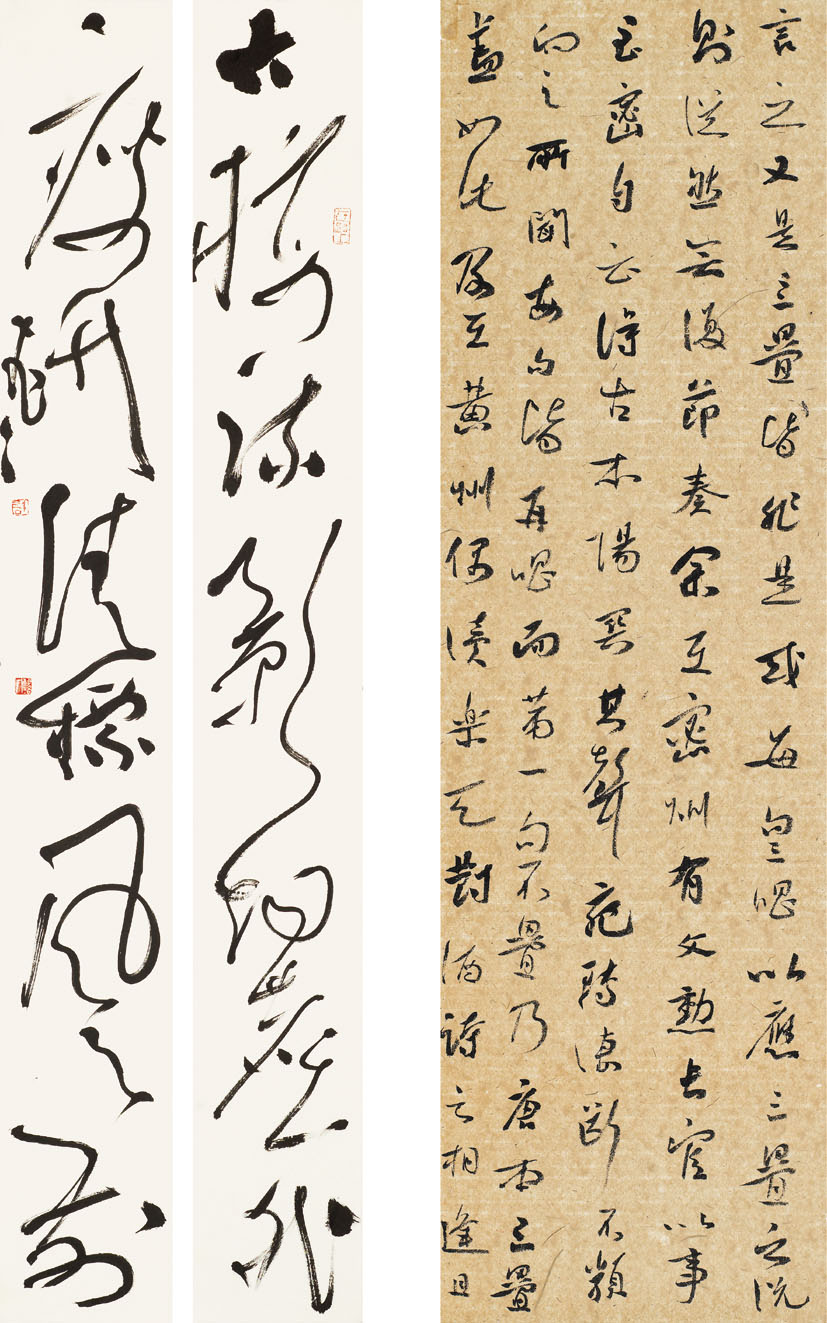 言之又是三疊皆非是或每句三唱以應三疊之說
則從然無復節奏余在密州有文勳長官以事
至密自云得古本陽関其聲宛轉凄断不類
向之所聞每句皆再唱而第一句不疊乃唐本三疊
蓋如此及在黄州偶讀樂天對酒詩云相逢且
古疏影巖外
瘦竹清標風前